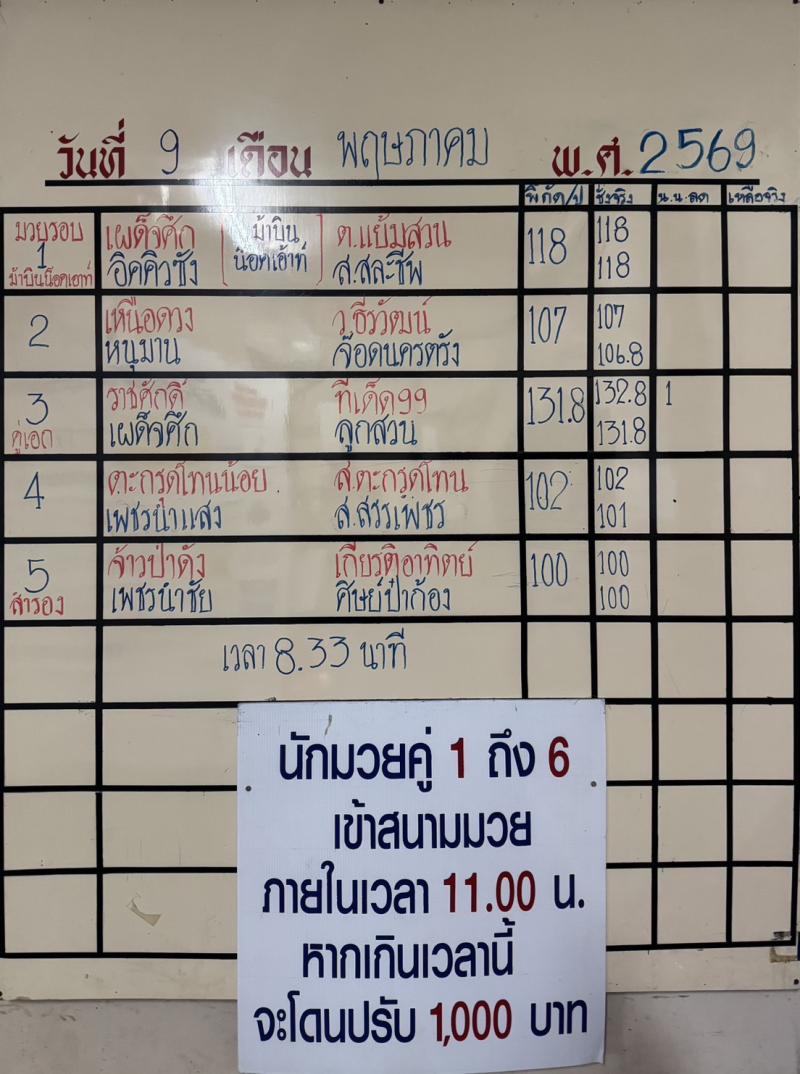 วันที่ 9 เดือน พฤษภาคม พ.ศ. 2569
พิกัด/ป ชั่งจริง น.น.ลด เหลือจริง
มวยรอบ เผด็จศึก ม้าบิน ต.แย้มสวน 118 118
1 อิคคิวซัง น็อคเอ้าท์ ส.สละชีพ 118
ม้าบินน็อคเอาท์
2 เหนือดวง ว.ธีรวัฒน์ 107 107
หนุมาน จ๊อดนครตรัง 106.8
3 ราชศักดิ์ ทีเด็ด99 131.8 132.8 1
คู่เอก เผด็จศึก ลูกสวน 131.8
4 ตะกรุดโทนน้อย ส.ตะกรุดโทน 102 102
เพชรนำแสง ส.สรรเพชร 101
5 จ้าวป่าดัง เกียรติอาทิตย์ 100 100
สำรอง เพชรนำชัย ศิษย์ป๋าก้อง 100
เวลา 8.33 นาที
นักมวยคู่ 1 ถึง 6
เข้าสนามมวย
ภายในเวลา 11.00 น.
หากเกินเวลานี้
จะโดนปรับ 1,000 บาท